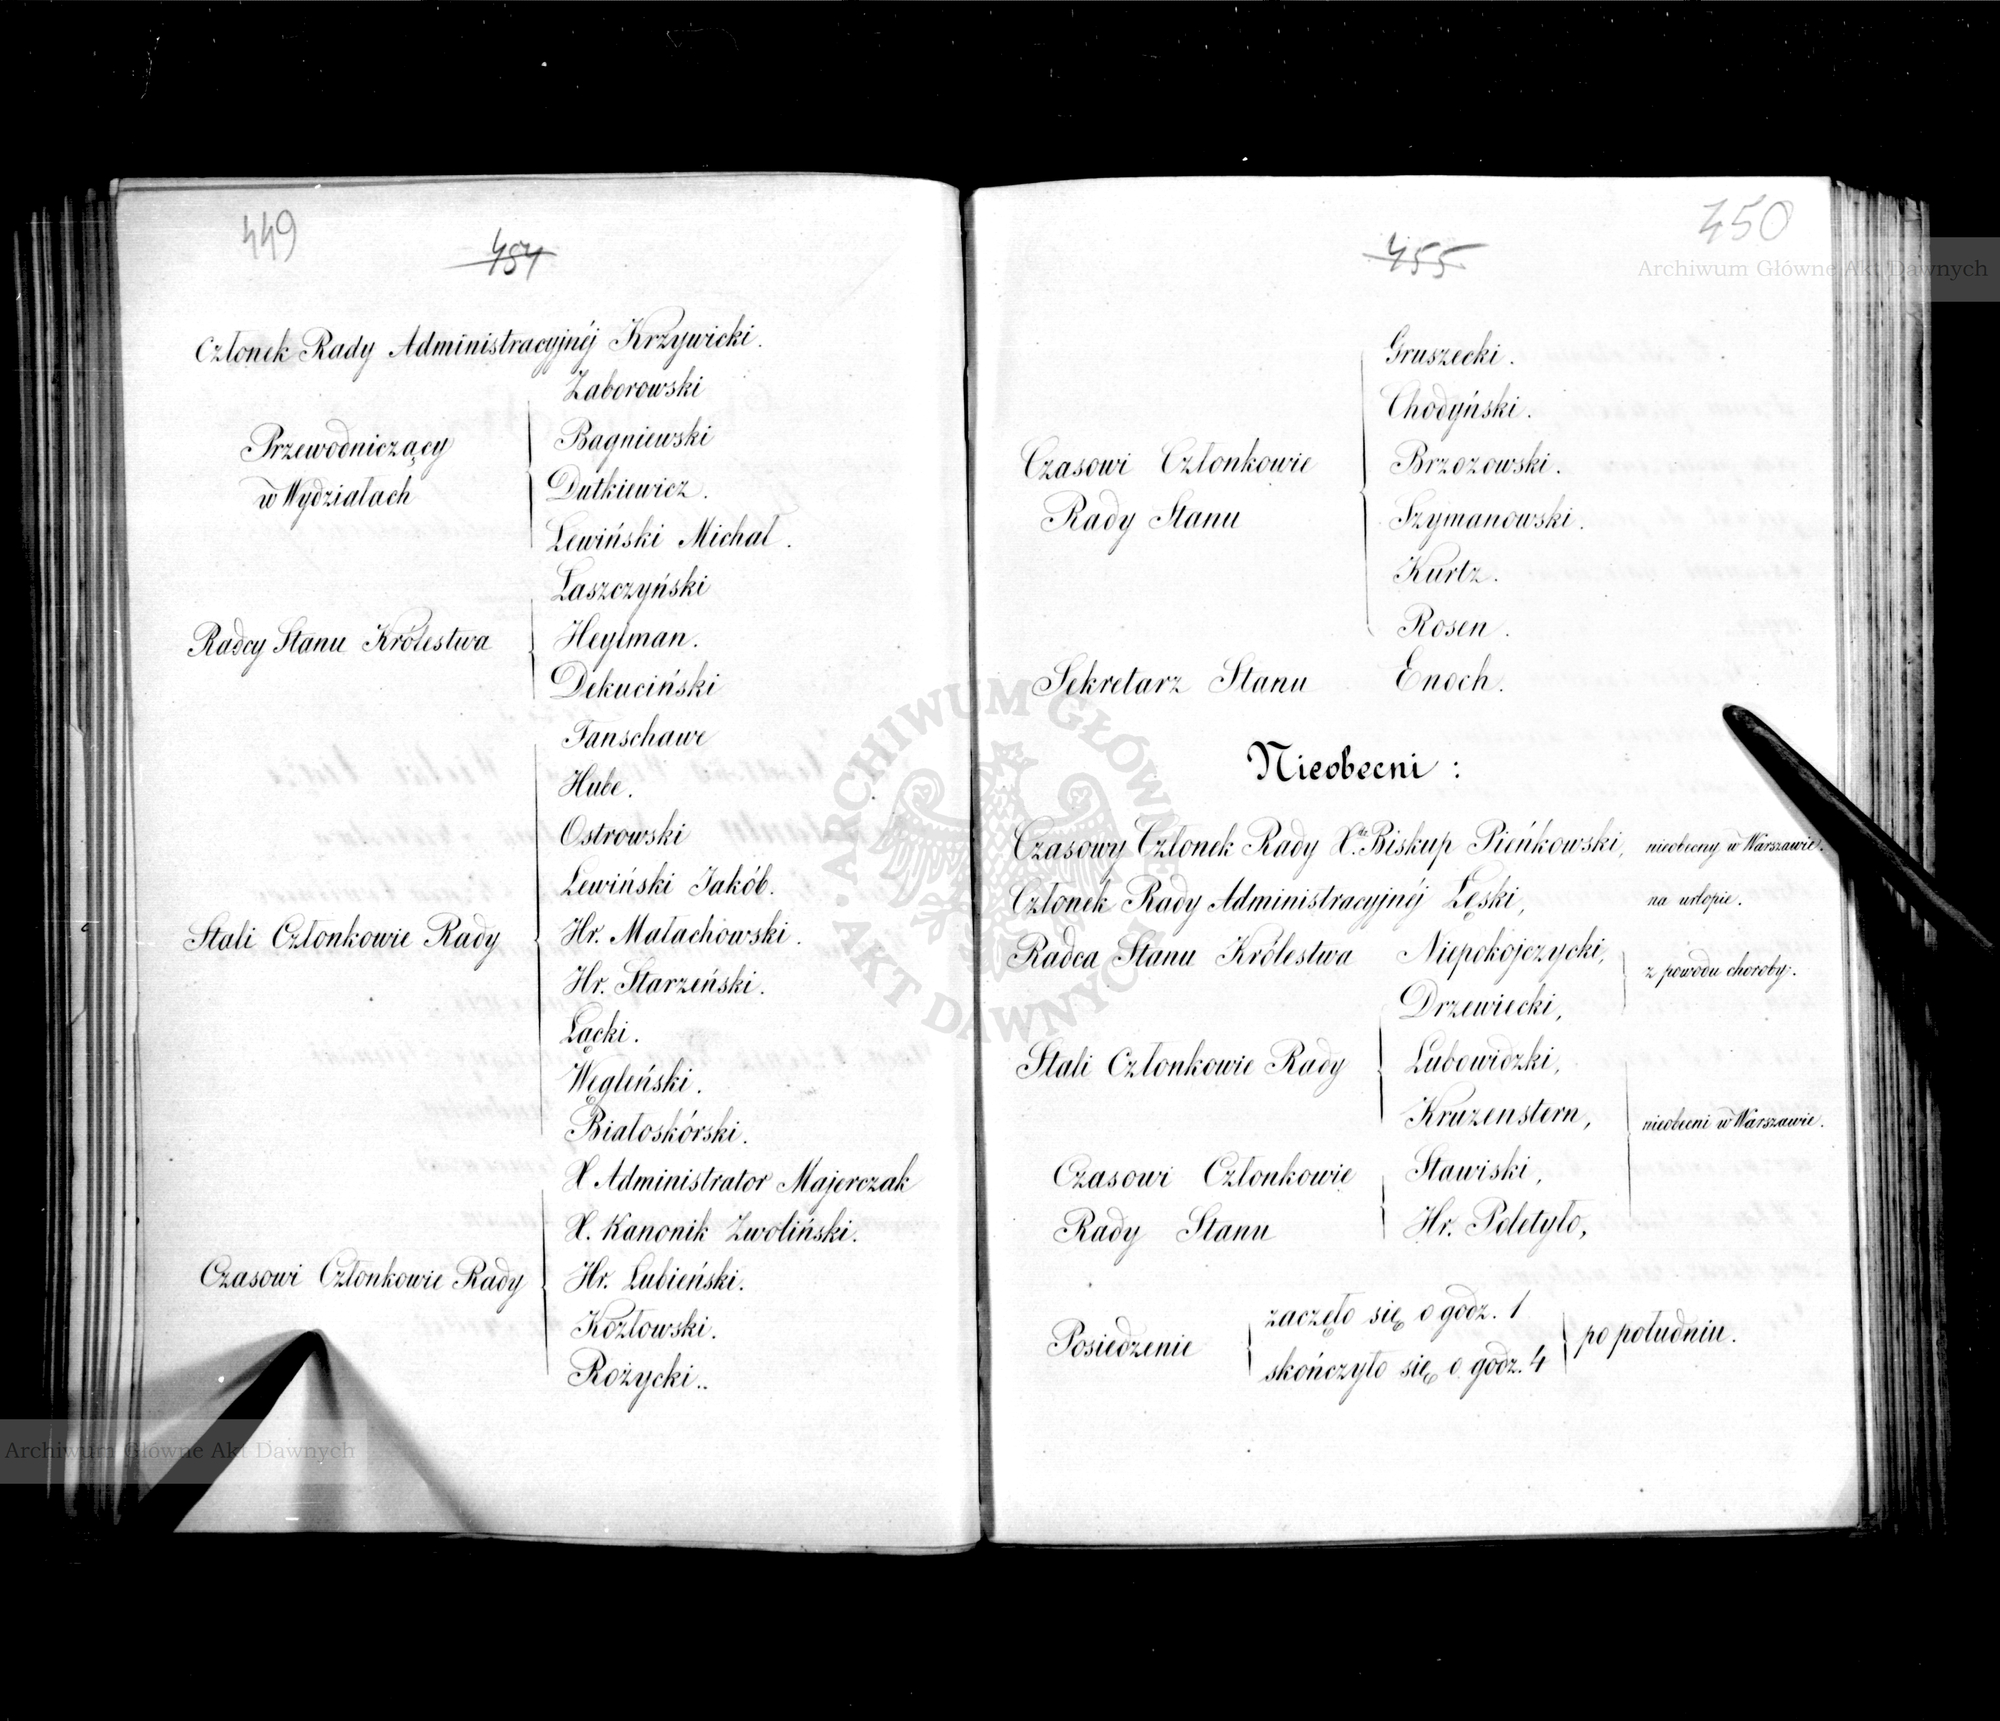 449
454
Członek Rady Administracyjnéj Krzywicki.
Przewodniczący
w Wydziałach
Zaborowski
Bagniewski
Dutkiewicz.
Lewiński Michał.
Radcy Stanu Królestwa
Łaszczyński
Heylman.
Dekuciński
Stali Członkowie Rady
Fanschawe
Hube.
Ostrowski
Lewiński Jakób.
Hr. Małachowski.
Hr. Starzeński.
Łącki.
Węgleński.
Białoskórski.
Czasowi Członkowie Rady
X Administrator Majerczak
X. Kanonik Zwoliński.
Hr. Łubieński.
Kozłowski.
Rożycki..
450
455
Czasowi Członkowie
Rady Stanu
Gruszecki.
Chodyński.
Brzozowski.
Szymanowski.
Kurtz.
Rosen.
Sekretarz Stanu Enoch.
Nieobecni:
Czasowy Członek Rady X. Biskup Pieńkowski, nieobecny w Warszawie.
Członek Rady Administracyjnéj Łęski, na urlopie.
Radca Stanu Królestwa Niepokojczycki,
z powodu choroby.
Stali Członkowie Rady
Drzewiecki,
Lubowidzki,
Kruzenstern,
nieobecni w Warszawie.
Czasowi Członkowie
Rady Stanu
Stawiski,
Hr. Poletyło,
Posiedzenie
zaczęło się o godz. 1
skończyło się o godz. 4
po południu.
Archiwum Główne Akt Dawnych
ARCHIWUM GŁÓWNE AKT DAWNYCH
Archiwum Główne Akt Dawnych